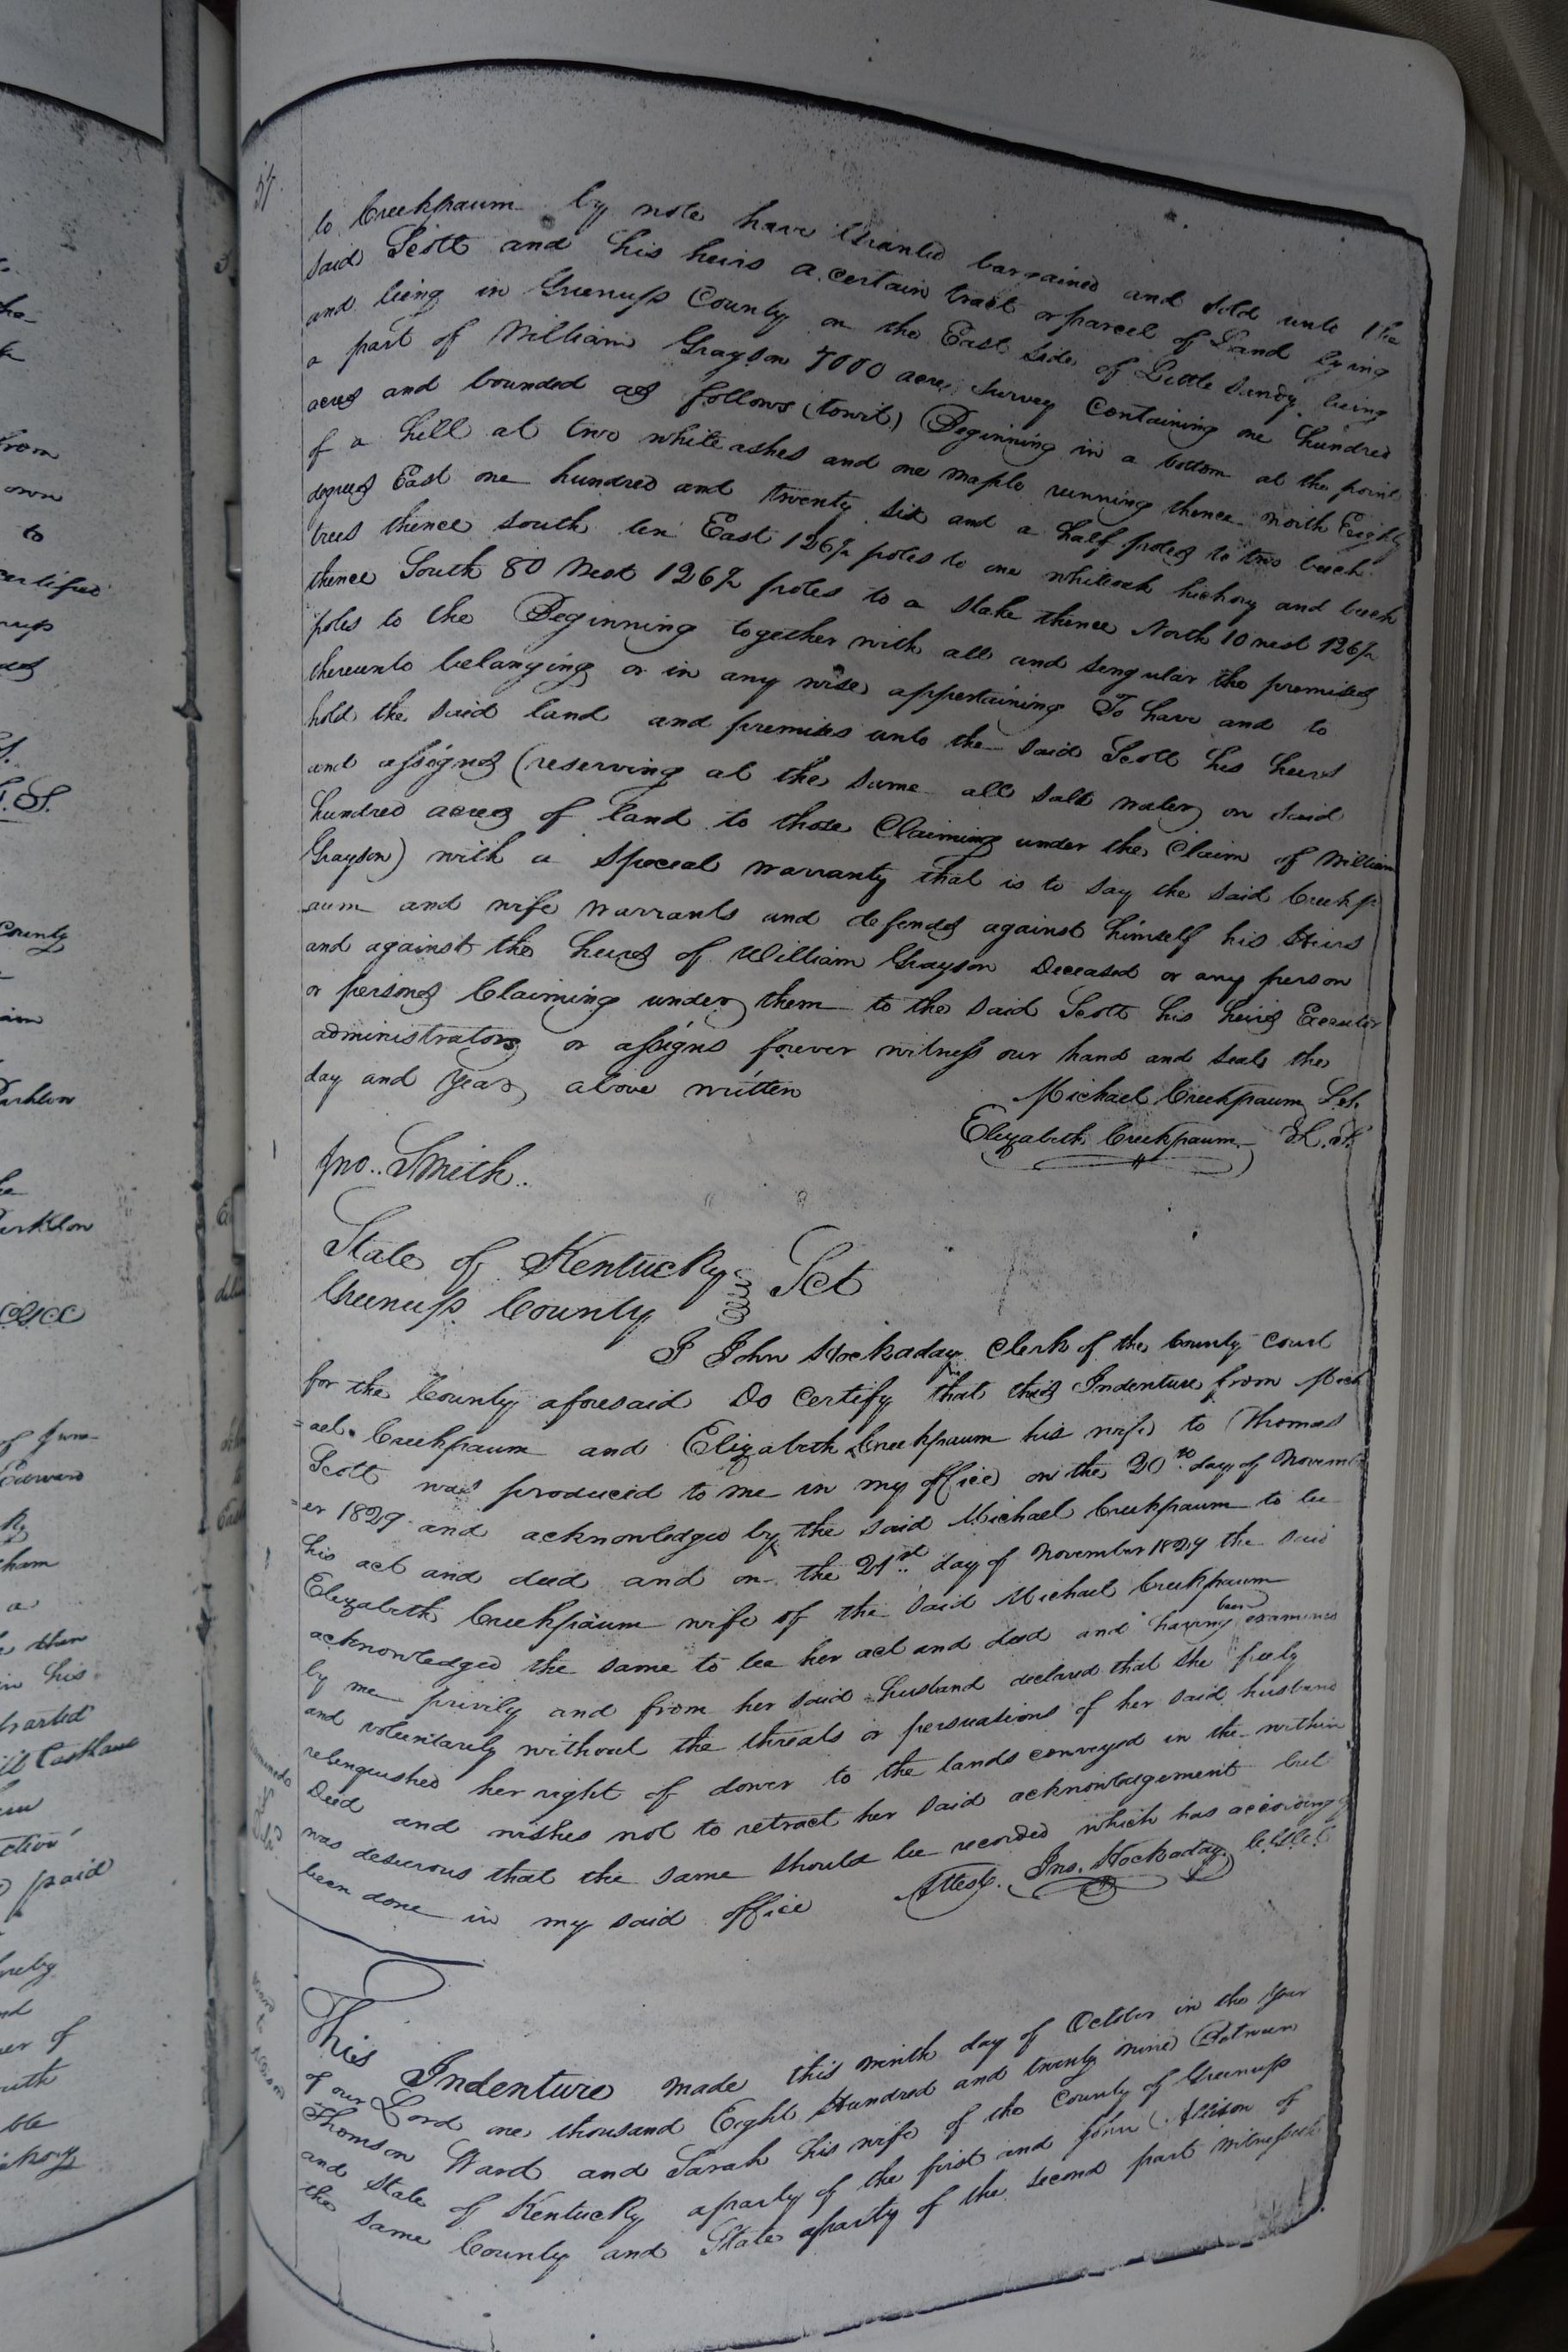 57.
to Creekpaum by note have Granted bargained and sold unto the
said Scott and his heirs a certain tract or parcel of Land lying
and being in Greenup County on the East side of Little Sandy being
a part of William Grayson 7000 acres survey Containing one hundred
acres and bounded as follows (towit) Beginning in a bottom at the point
of a hill at two white ashes and one maple running thence north Eighty
degrees East one hundred and twenty six and a half poles to two beech
trees thence south ten East 126½ poles to one whiteoak hickory and beech
thence South 80 West 126½ poles to a stake thence North 10 west 126½
poles to the Beginning together with all and singular the premises
thereunto belonging or in any wise appertaining To have and to
hold the said land and premises unto the said Scott his heirs
and assigns (reserving at the same all salt water on said
hundred acres of land to those Claiming under the Claim of William
Grayson) with a special warranty that is to say the said Creekp
aum and wife warrants and defends against himself his Heirs
and against the heirs of William Grayson Deceased or any person
or persons Claiming under them to the said Scott his heirs Executor
administrators or assigns forever witness our hand and seals the
day and year above written
Michael Creekpaum L.S.
Elizabeth Creekpaum L.S.
Jno. Smith.
State of Kentucky
Greenup County Sct
I John Hockaday Clerk of the County Court
for the County aforesaid Do certify that this Indenture from Mich
=ael Creekpaum and Elizabeth Creekpaum his wife to Thomas
Scott was produced to me in my office on the 20th day of Novemb
=er 1829 and acknowledged by the said Michael Creekpaum to be
his act and deed and on the 21st day of November 1829 the said
Elizabeth Creekpaum wife of the said Michael Creekpaum
acknowledged the same to be her act and deed and having been examined
by me privily and from her said husband declared that she freely
and voluntarily without the threats or persuations of her said husband
relinquished her right of dower to the lands conveyed in the within
Deed and wishes not to retract her said acknowledgement but
was desirous that the same should be recorded which has accordingly
been done in my said office
Attest. Jno. Hockaday
This Indenture made this ninth day of October in the year
of our Lord one thousand Eight Hundred and twenty nine Between
Thomson Ward and Sarah his wife of the County of Greenup
and State of Kentucky a party of the first and John Allison of
the same County and State a party of the second part Witnesseth